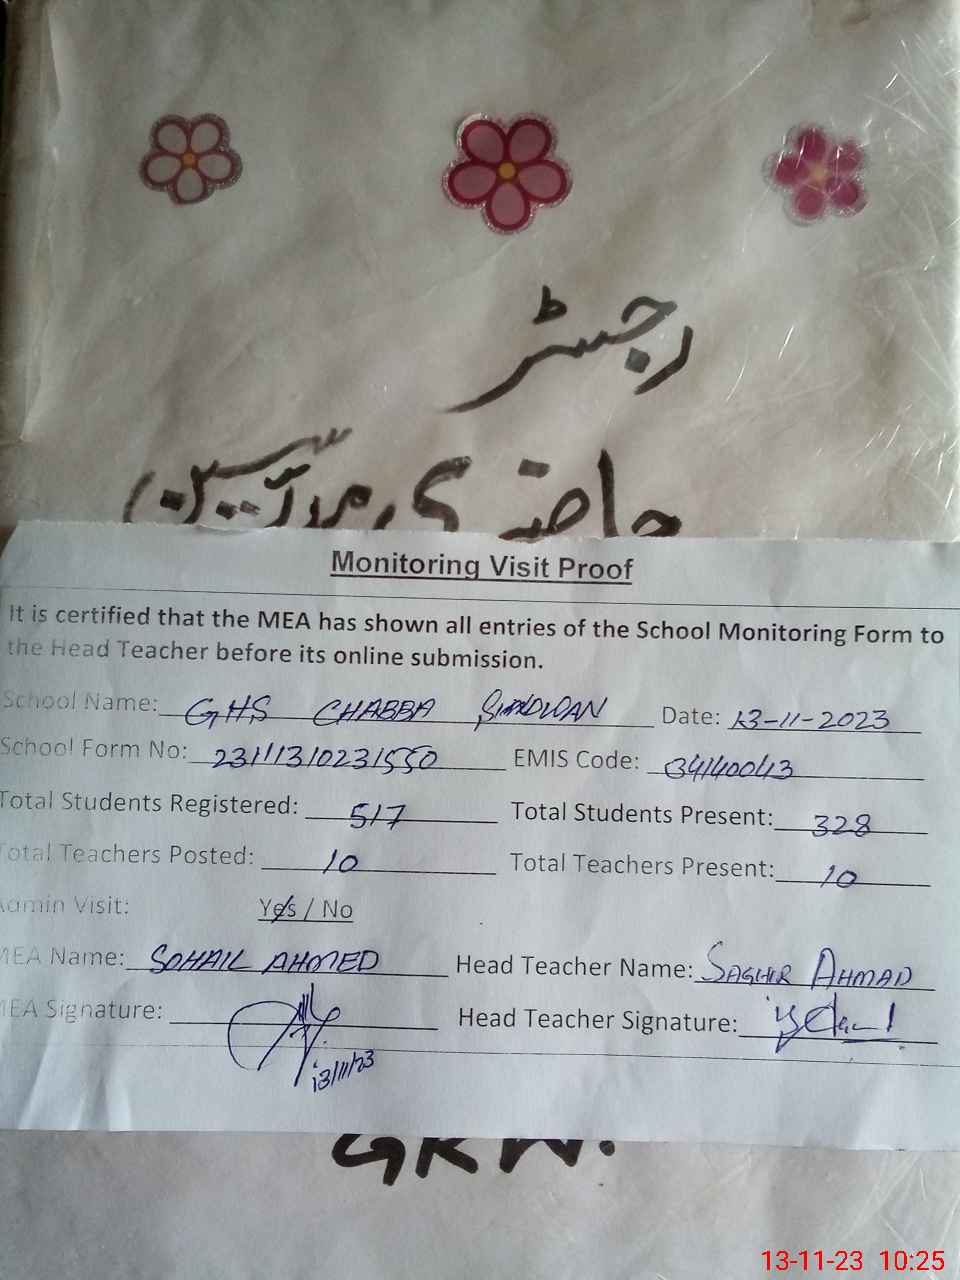 رجسٹر
حاضری مدرسین
Monitoring Visit Proof
It is certified that the MEA has shown all entries of the School Monitoring Form to
the Head Teacher before its online submission.
School Name: GHS CHABBA SINDWAN Date: 13-11-2023
School Form No: 23111310231550 EMIS Code: 34140013
Total Students Registered: 517 Total Students Present: 328
Total Teachers Posted: 10 Total Teachers Present: 10
Admin Visit: Yes / No
MEA Name: SOHAIL AHMED Head Teacher Name: SAGHIR AHMAD
MEA Signature: Head Teacher Signature:
13/11/23
GRW.
13-11-23 10:25